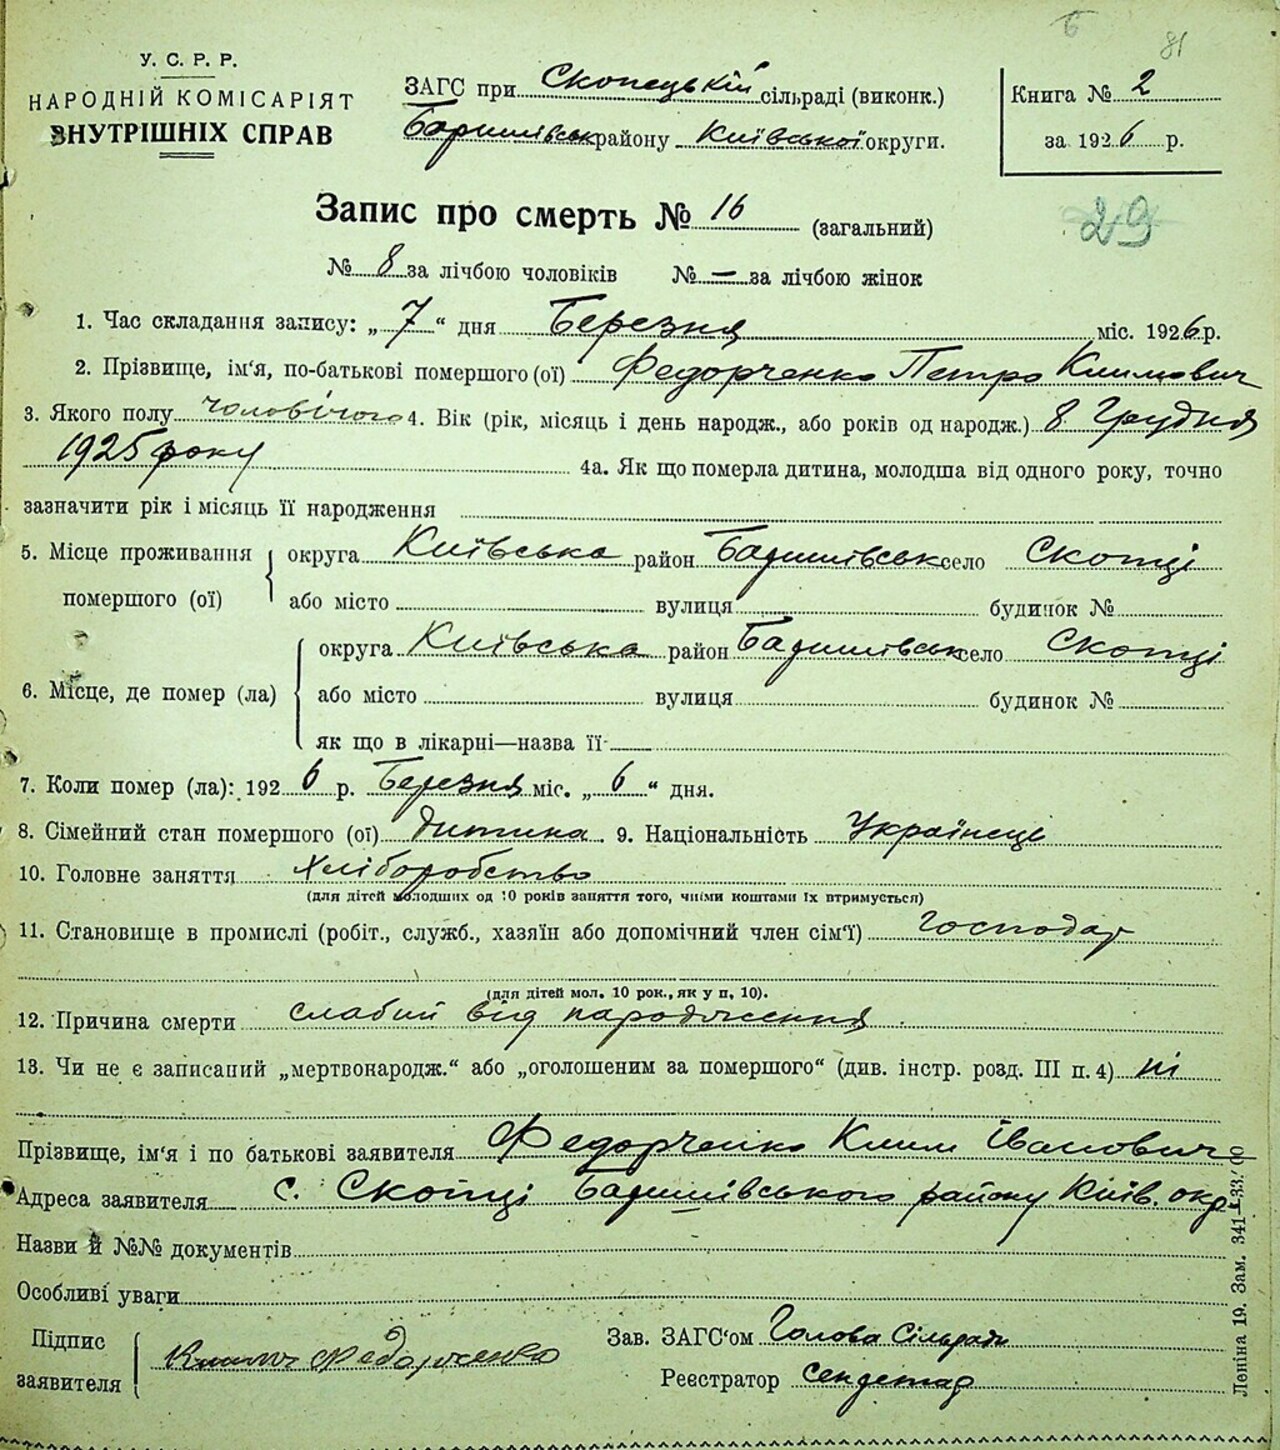 Б 81
У. С. Р. Р.
НАРОДНІЙ КОМІСАРІЯТ
ВНУТРІШНІХ СПРАВ
ЗАГС при Скопецькій сільраді (виконк.)
Баришівськ району Київської округи.
Книга № 2
за 1926 р.
Запис про смерть № 16 (загальний)
29
№ 8 за лічбою чоловіків № — за лічбою жінок
1. Час складання запису: „7“ дня Березня міс. 1926 р.
2. Прізвище, ім‘я, по-батькові помершого (ої) Федорченко Петро Климович
3. Якого полу чоловічого 4. Вік (рік, місяць і день народж., або років од народж.) 8 Грудня
1925 року 4а. Як що померла дитина, молодша від одного року, точно
зазначити рік і місяць її народження
5. Місце проживання помершого (ої) округа Київська район Баришівськ село Скопці
або місто вулиця будинок №
6. Місце, де помер (ла) округа Київська район Баришівськ село Скопці
або місто вулиця будинок №
як що в лікарні—назва її
7. Коли помер (ла): 1926 р. Березня міс. „6“ дня.
8. Сімейний стан помершого (ої) дитина. 9. Національність Українець
10. Головне заняття Хліборобство
(для дітей молодших од 10 років заняття того, чиїми коштами їх втримується)
11. Становище в промислі (робіт., служб., хазяїн або допомічний член сім‘ї) Господар
(для дітей мол. 10 рок., як у п. 10).
12. Причина смерти слабий від народження
13. Чи не є записаний „мертвонародж.“ або „оголошеним за помершого“ (див. інстр. розд. III п. 4) ні
Прізвище, ім‘я і по батькові заявителя Федорченко Клим Іванович
Адреса заявителя с. Скопці Баришівського району Київ. окр.
Назви й №№ документів
Особливі уваги
Підпис заявителя Федорченко
Зав. ЗАГС‘ом Голова Сільради
Реєстратор Секретар
Леніна 19. Зам. 341—33.